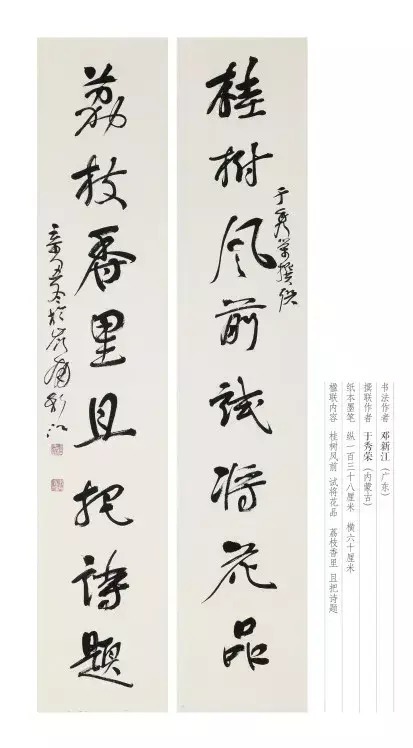 桂樹風前試將花品
于秀榮撰聯
荔枝香里且把詩題
辛丑冬於嶺南新江
书法作者 邓新江（广东）
撰联作者 于秀荣（内蒙古）
纸本墨笔 纵一百三十八厘米 横六十厘米
楹联内容 桂树风前 试将花品 荔枝香里 且把诗题